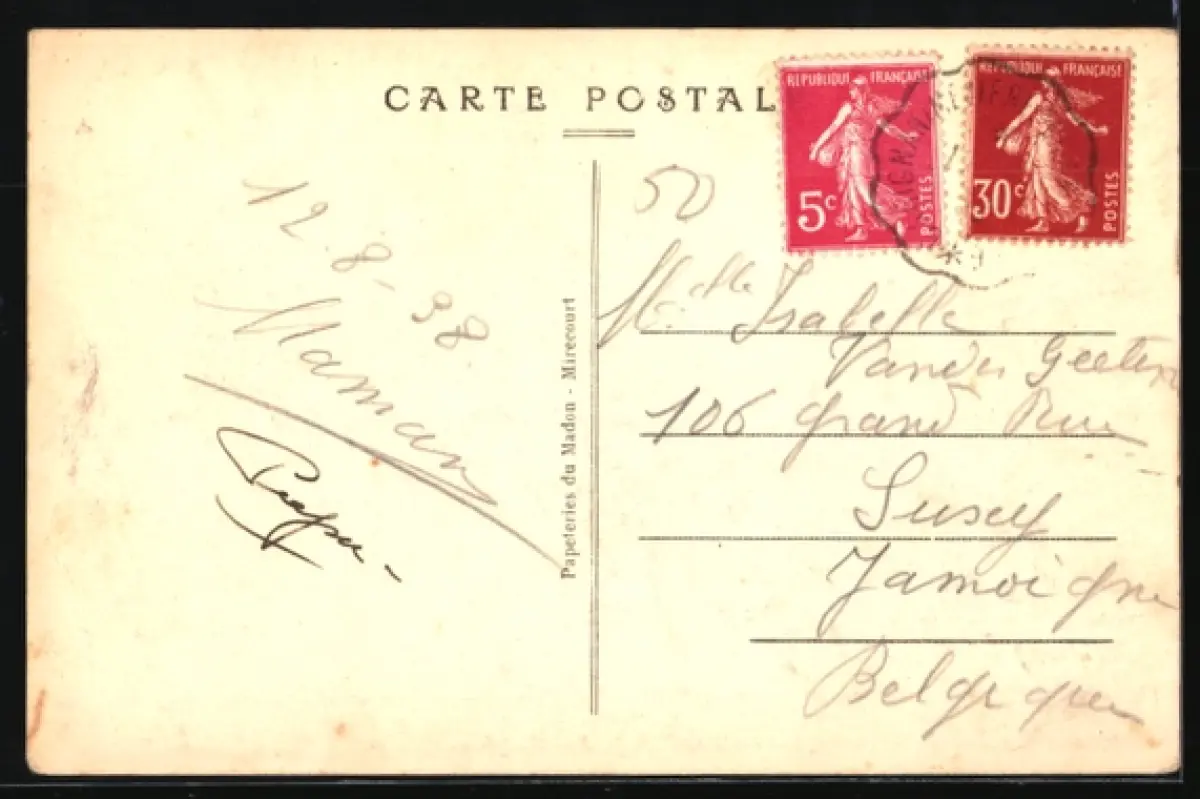 CARTE POSTAL
REPUBLIQUE FRANÇAISE
5c
POSTES
REPUBLIQUE FRANÇAISE
30c
POSTES
12-8-38
Maman
Papeteries du Madon - Mirecourt
50
Melle Isabelle
106 grand Rue
Jamoigne
Belgique